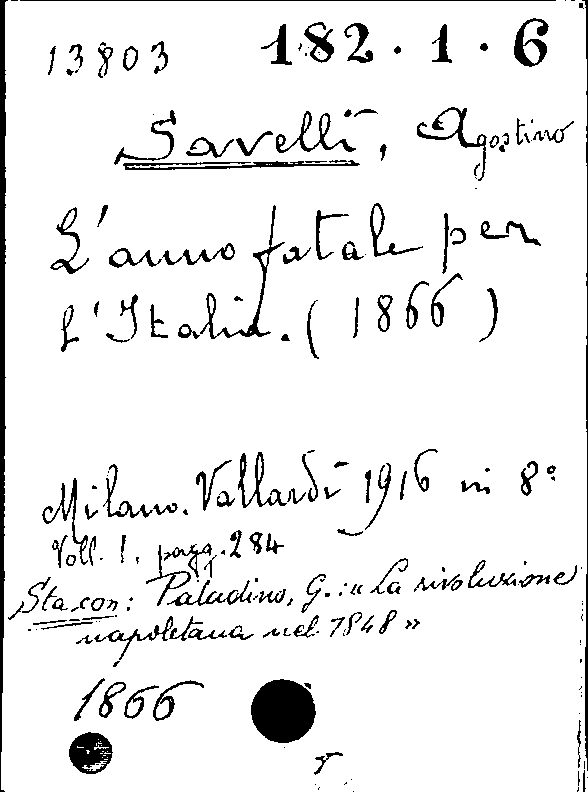 13803 182.1.6
Savelli, Agostino
L'anno fatale per
l'Italia. (1866)
Milano. Vallardi 1916 in 8°
Voll. 1, pagg. 284
Sta con: Paladino, G.: « La rivoluzione
napoletana nel 1848 »
1866